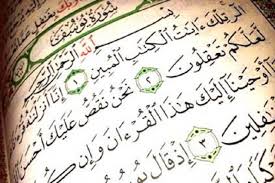 سُورَةُ يُوسُفَ
بِسْمِ اللَّهِ الرَّحْمَٰنِ الرَّحِيمِ
الٓر تِلْكَ ءَايَٰتُ ٱلْكِتَٰبِ ٱلْمُبِينِ ١ إِنَّآ أَنزَلْنَٰهُ
لَّعَلَّكُمْ تَعْقِلُونَ ٢ نَحْنُ نَقُصُّ عَلَيْكَ أَحْسَنَ
أَوْحَيْنَآ إِلَيْكَ هَٰذَا ٱلْقُرْءَانَ وَإِن كُ
فِلِينَ ٣ إِذْ قَالَ يُوسُ